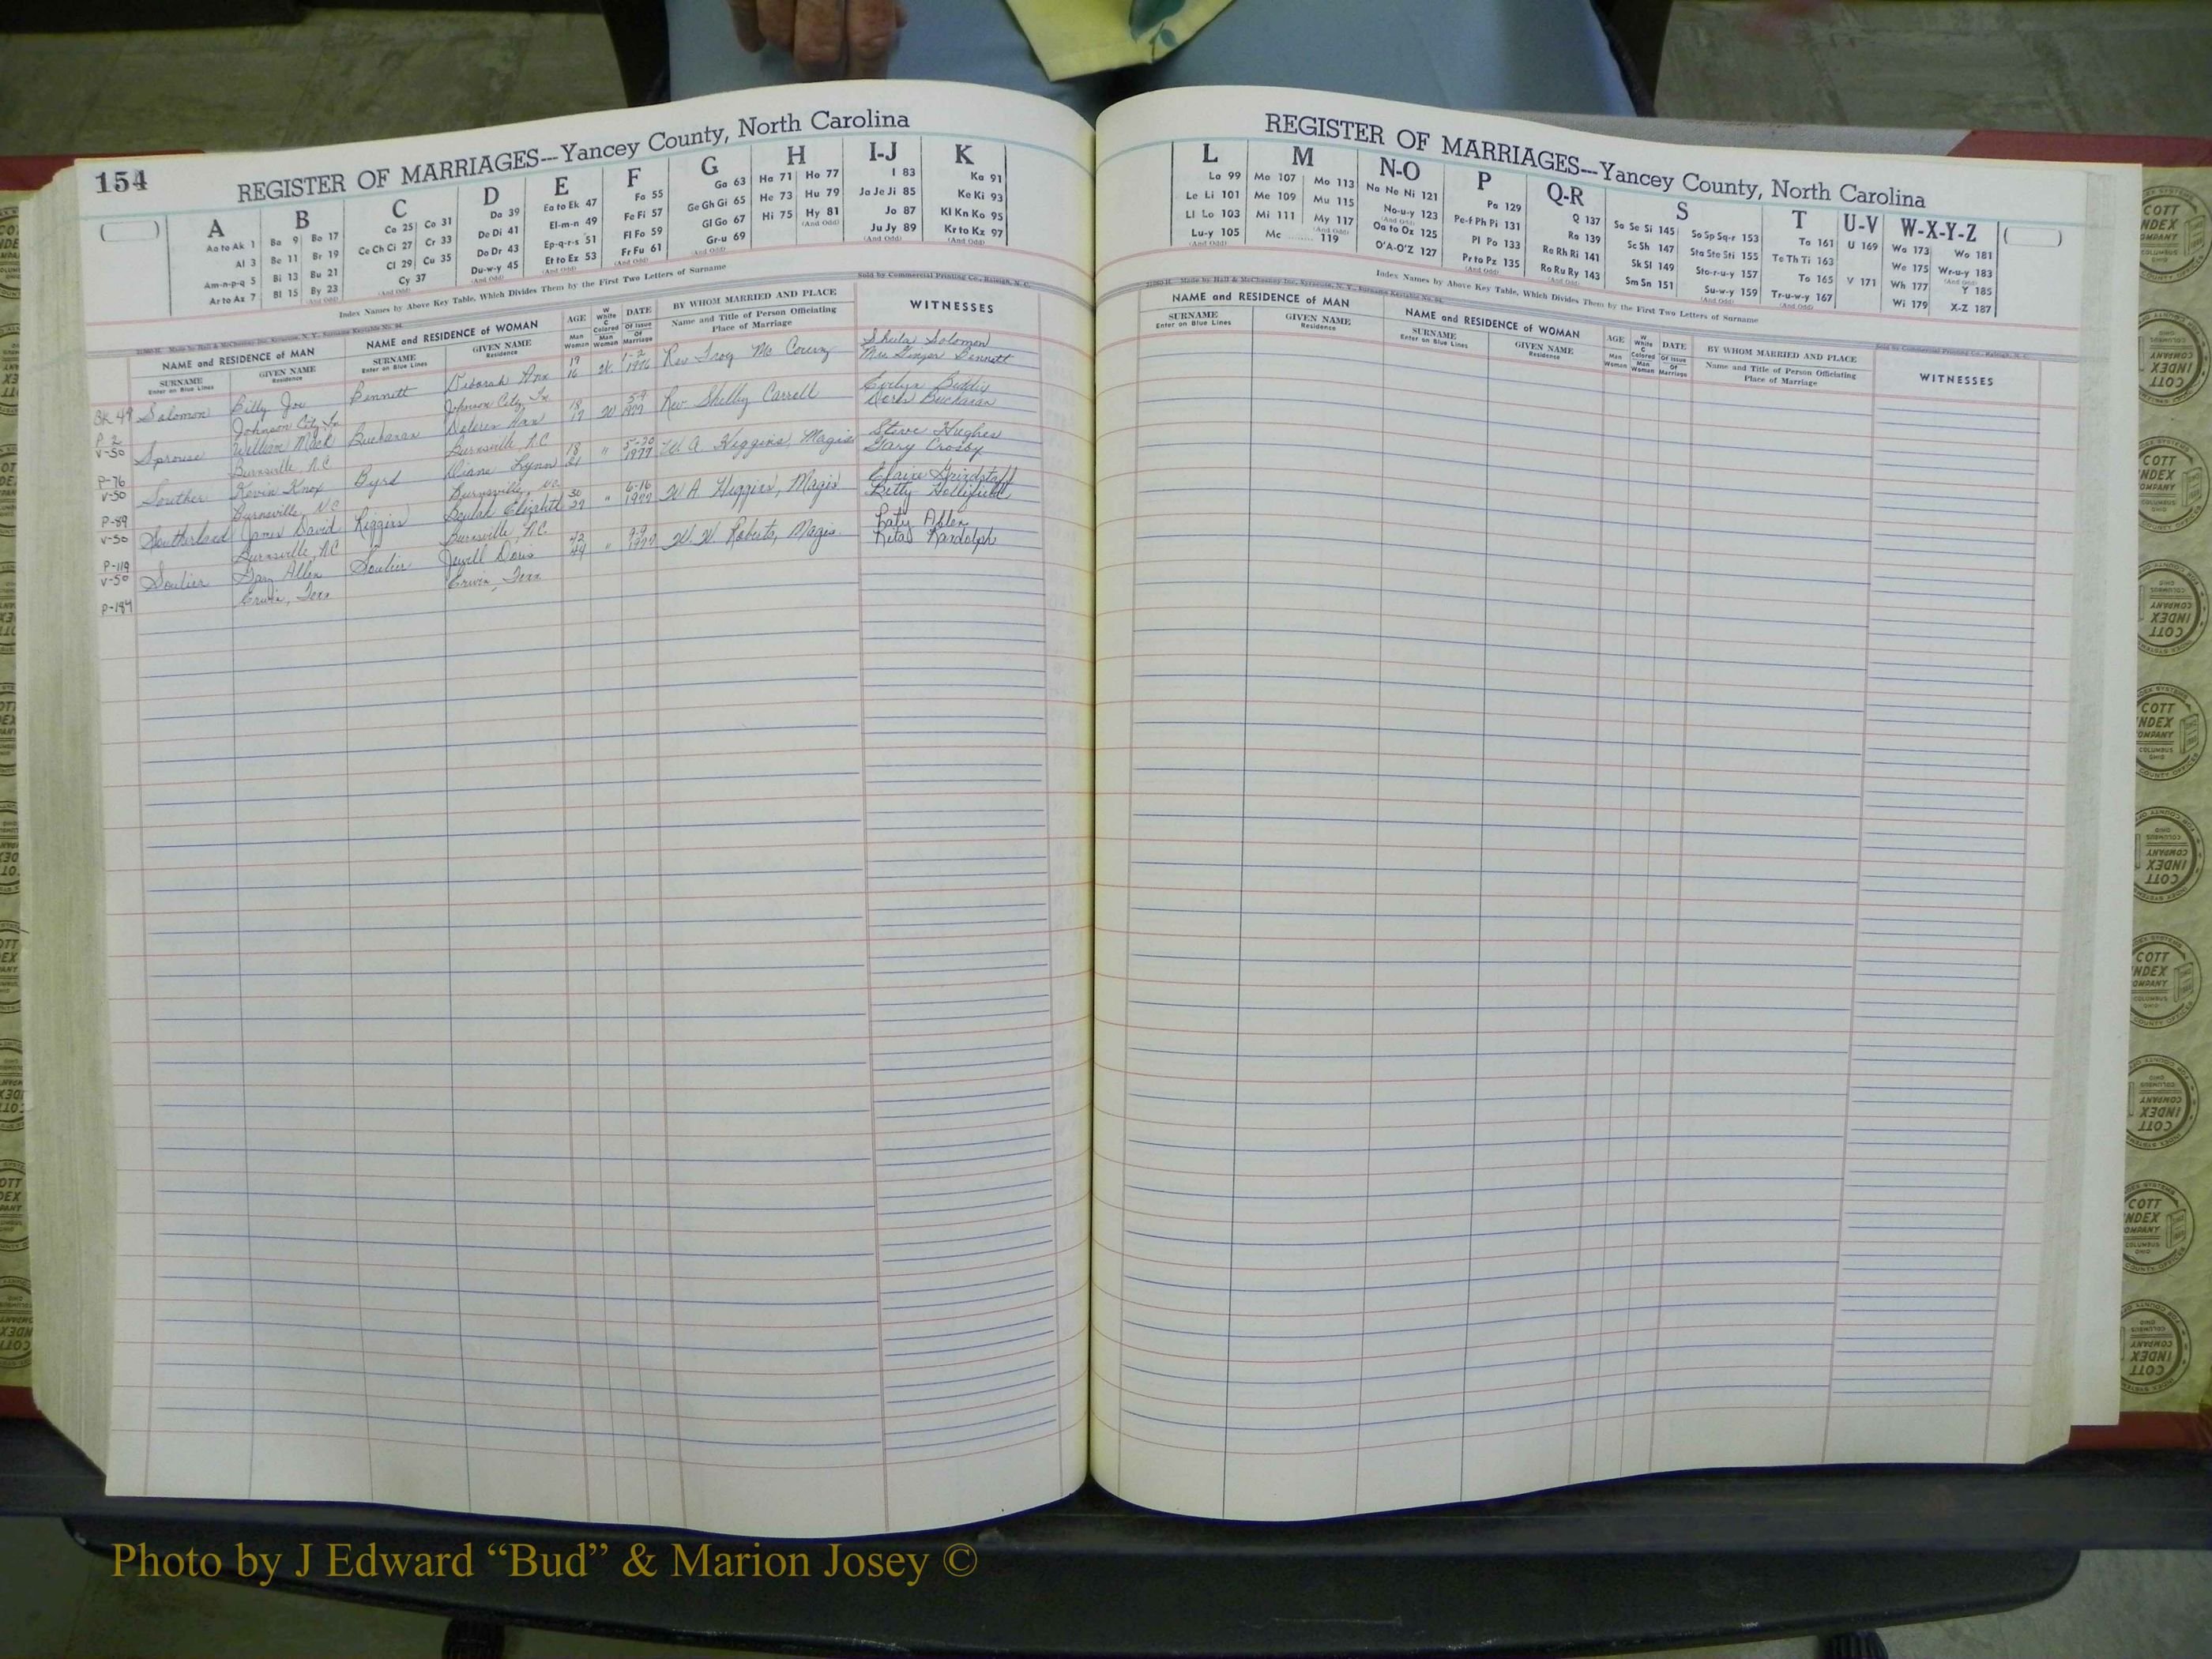 154
REGISTER OF MARRIAGES---Yancey County, North Carolina
A
Aa to Ak 1
Al 3
Am-n-p-q 5
Ar to Az 7
B
Ba 9 Bo 17
Be 11 Br 19
Bi 13 Bu 21
Bl 15 By 23
(And Odd)
C
Ca 25 Co 31
Ce Ch Ci 27 Cr 33
Cl 29 Cu 35
Cy 37
(And Odd)
D
Da 39
De Di 41
Do Dr 43
Du-w-y 45
(And Odd)
E
Ea to Ek 47
El-m-n 49
Ep-q-r-s 51
Et to Ez 53
(And Odd)
F
Fa 55
Fe Fi 57
Fl Fo 59
Fr Fu 61
(And Odd)
G
Ga 63
Ge Gh Gi 65
Gl Go 67
Gr-u 69
(And Odd)
H
Ha 71 Ho 77
He 73 Hu 79
Hi 75 Hy 81
(And Odd)
I-J
I 83
Ja Je Ji 85
Jo 87
Ju Jy 89
(And Odd)
K
Ka 91
Ke Ki 93
Kl Kn Ko 95
Kr to Kz 97
(And Odd)
Index Names by Above Key Table, Which Divides Them by the First Two Letters of Surname
Sold by Commercial Printing Co., Raleigh, N. C.
NAME and RESIDENCE of MAN
SURNAME
Enter on Blue Lines
GIVEN NAME
Residence
NAME and RESIDENCE of WOMAN
SURNAME
Enter on Blue Lines
GIVEN NAME
Residence
AGE
Man
Woman
W
White
C
Colored
Man
Woman
DATE
Of Issue
Of
Marriage
BY WHOM MARRIED AND PLACE
Name and Title of Person Officiating
Place of Marriage
WITNESSES
BK 49 Solomon Billy Joe Bennett Deborah Ann 19 W 1-2 Rev Troy Mc Shula Solomon
P-2 Johnson City, Tn Johnson City, Tn 16 1976 Mrs Bennett
V-50 Sprouse William Mack Buchanan Ann 18 W 5-9 Rev. Shelby Carroll
P-76 Burnsville, N.C Burnsville, N.C 17 1977 Buchanan
V-50 Souther Kevin Knox Byrd Diane Lynn 18 " 5-20 W. A. Higgins, Magis Steve Hughes
P-89 Burnsville, N.C Burnsville, N.C. 21 1977 Gary Crosby
V-50 Southerland James David Riggins Beulah Elizabeth 30 " 6-16 W A Higgins, Magis Elaine Grindstaff
P-119 Burnsville, N.C Burnsville, N.C. 39 1977 Betty Hollifield
V-50 Soulier Gary Allen Soulier Jewell Doris 42 " W. W. Roberts, Magis.
P-184 Erwin, Tenn Erwin, Tenn 44 Rita Randolph
REGISTER OF MARRIAGES---Yancey County, North Carolina
L
La 99
Le Li 101
Ll Lo 103
Lu-y 105
(And Odd)
M
Ma 107 Mo 113
Me 109 Mu 115
Mi 111 My 117
(And Odd)
Mc ........ 119
N-O
Na Ne Ni 121
No-u-y 123
(And Odd)
Oa to Oz 125
O'A-O'Z 127
P
Pa 129
Pe-f Ph Pi 131
Pl Po 133
Pr to Pz 135
(And Odd)
Q-R
Q 137
Ra 139
Re Rh Ri 141
Ro Ru Ry 143
(And Odd)
S
Sa Se Si 145 So Sp Sq-r 153
Sc Sh 147 Sta Ste Sti 155
Sk Sl 149 Sto-r-u-y 157
Sm Sn 151 Su-w-y 159
(And Odd)
T
Ta 161
Te Th Ti 163
To 165
Tr-u-w-y 167
(And Odd)
U-V
U 169
V 171
W-X-Y-Z
Wa 173 Wo 181
We 175 Wr-u-y 183
(And Odd)
Wh 177 Y 185
Wi 179 X-Z 187
Index Names by Above Key Table, Which Divides Them by the First Two Letters of Surname
Sold by Commercial Printing Co., Raleigh, N. C.
NAME and RESIDENCE OF MAN
SURNAME
Enter on Blue Lines
GIVEN NAME
Residence
NAME and RESIDENCE OF WOMAN
SURNAME
Enter on Blue Lines
GIVEN NAME
Residence
AGE
Man
Woman
W
White
C
Colored
Man
Woman
DATE
Of Issue
Of
Marriage
BY WHOM MARRIED AND PLACE
Name and Title of Person Officiating
Place of Marriage
WITNESSES
COTT
INDEX
COMPANY
COLUMBUS
OHIO
Photo by J Edward “Bud” & Marion Josey ©